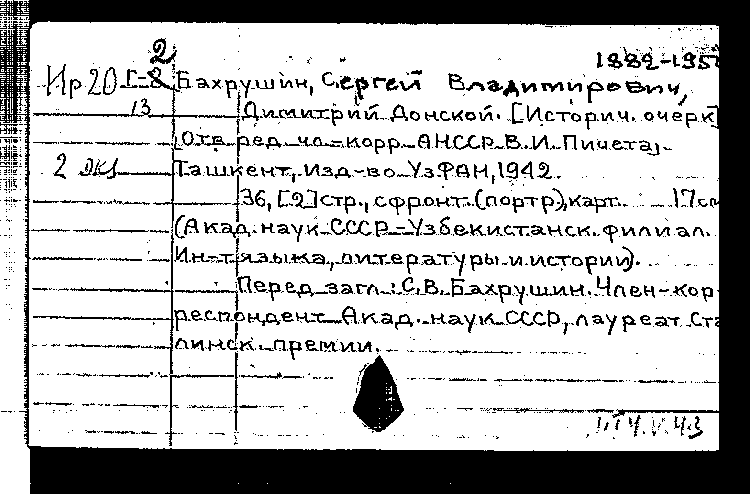 2
1882-195
Ир 20 Г-8 Бахрушин, Сергей Владимирович,
13 Димитрий Донской. [Историч. очерк]
[Отв. ред. чл.-корр. АН СССР В. И. Пичета].
2 экз Ташкент, Изд-во УзФАН, 1942.
36, [2] стр., с фронт. (портр), карт. 17 см
(Акад. наук СССР – Узбекистанск. филиал.
Ин-т языка, литературы и истории).
Перед загл.: С. В. Бахрушин. Член-кор-
респондент Акад. наук СССР, лауреат Ста
линск. премии.
4.V.43